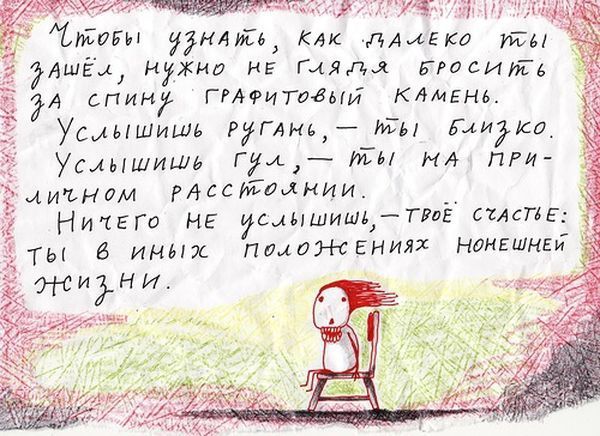 Чтобы узнать, как далеко ты
зашёл, нужно не глядя бросить
за спину графитовый камень.
Услышишь ругань, – ты близко.
Услышишь гул, – ты на при-
личном расстоянии.
Ничего не услышишь, – твоё счастье:
ты в иных положениях нонешней
жизни.